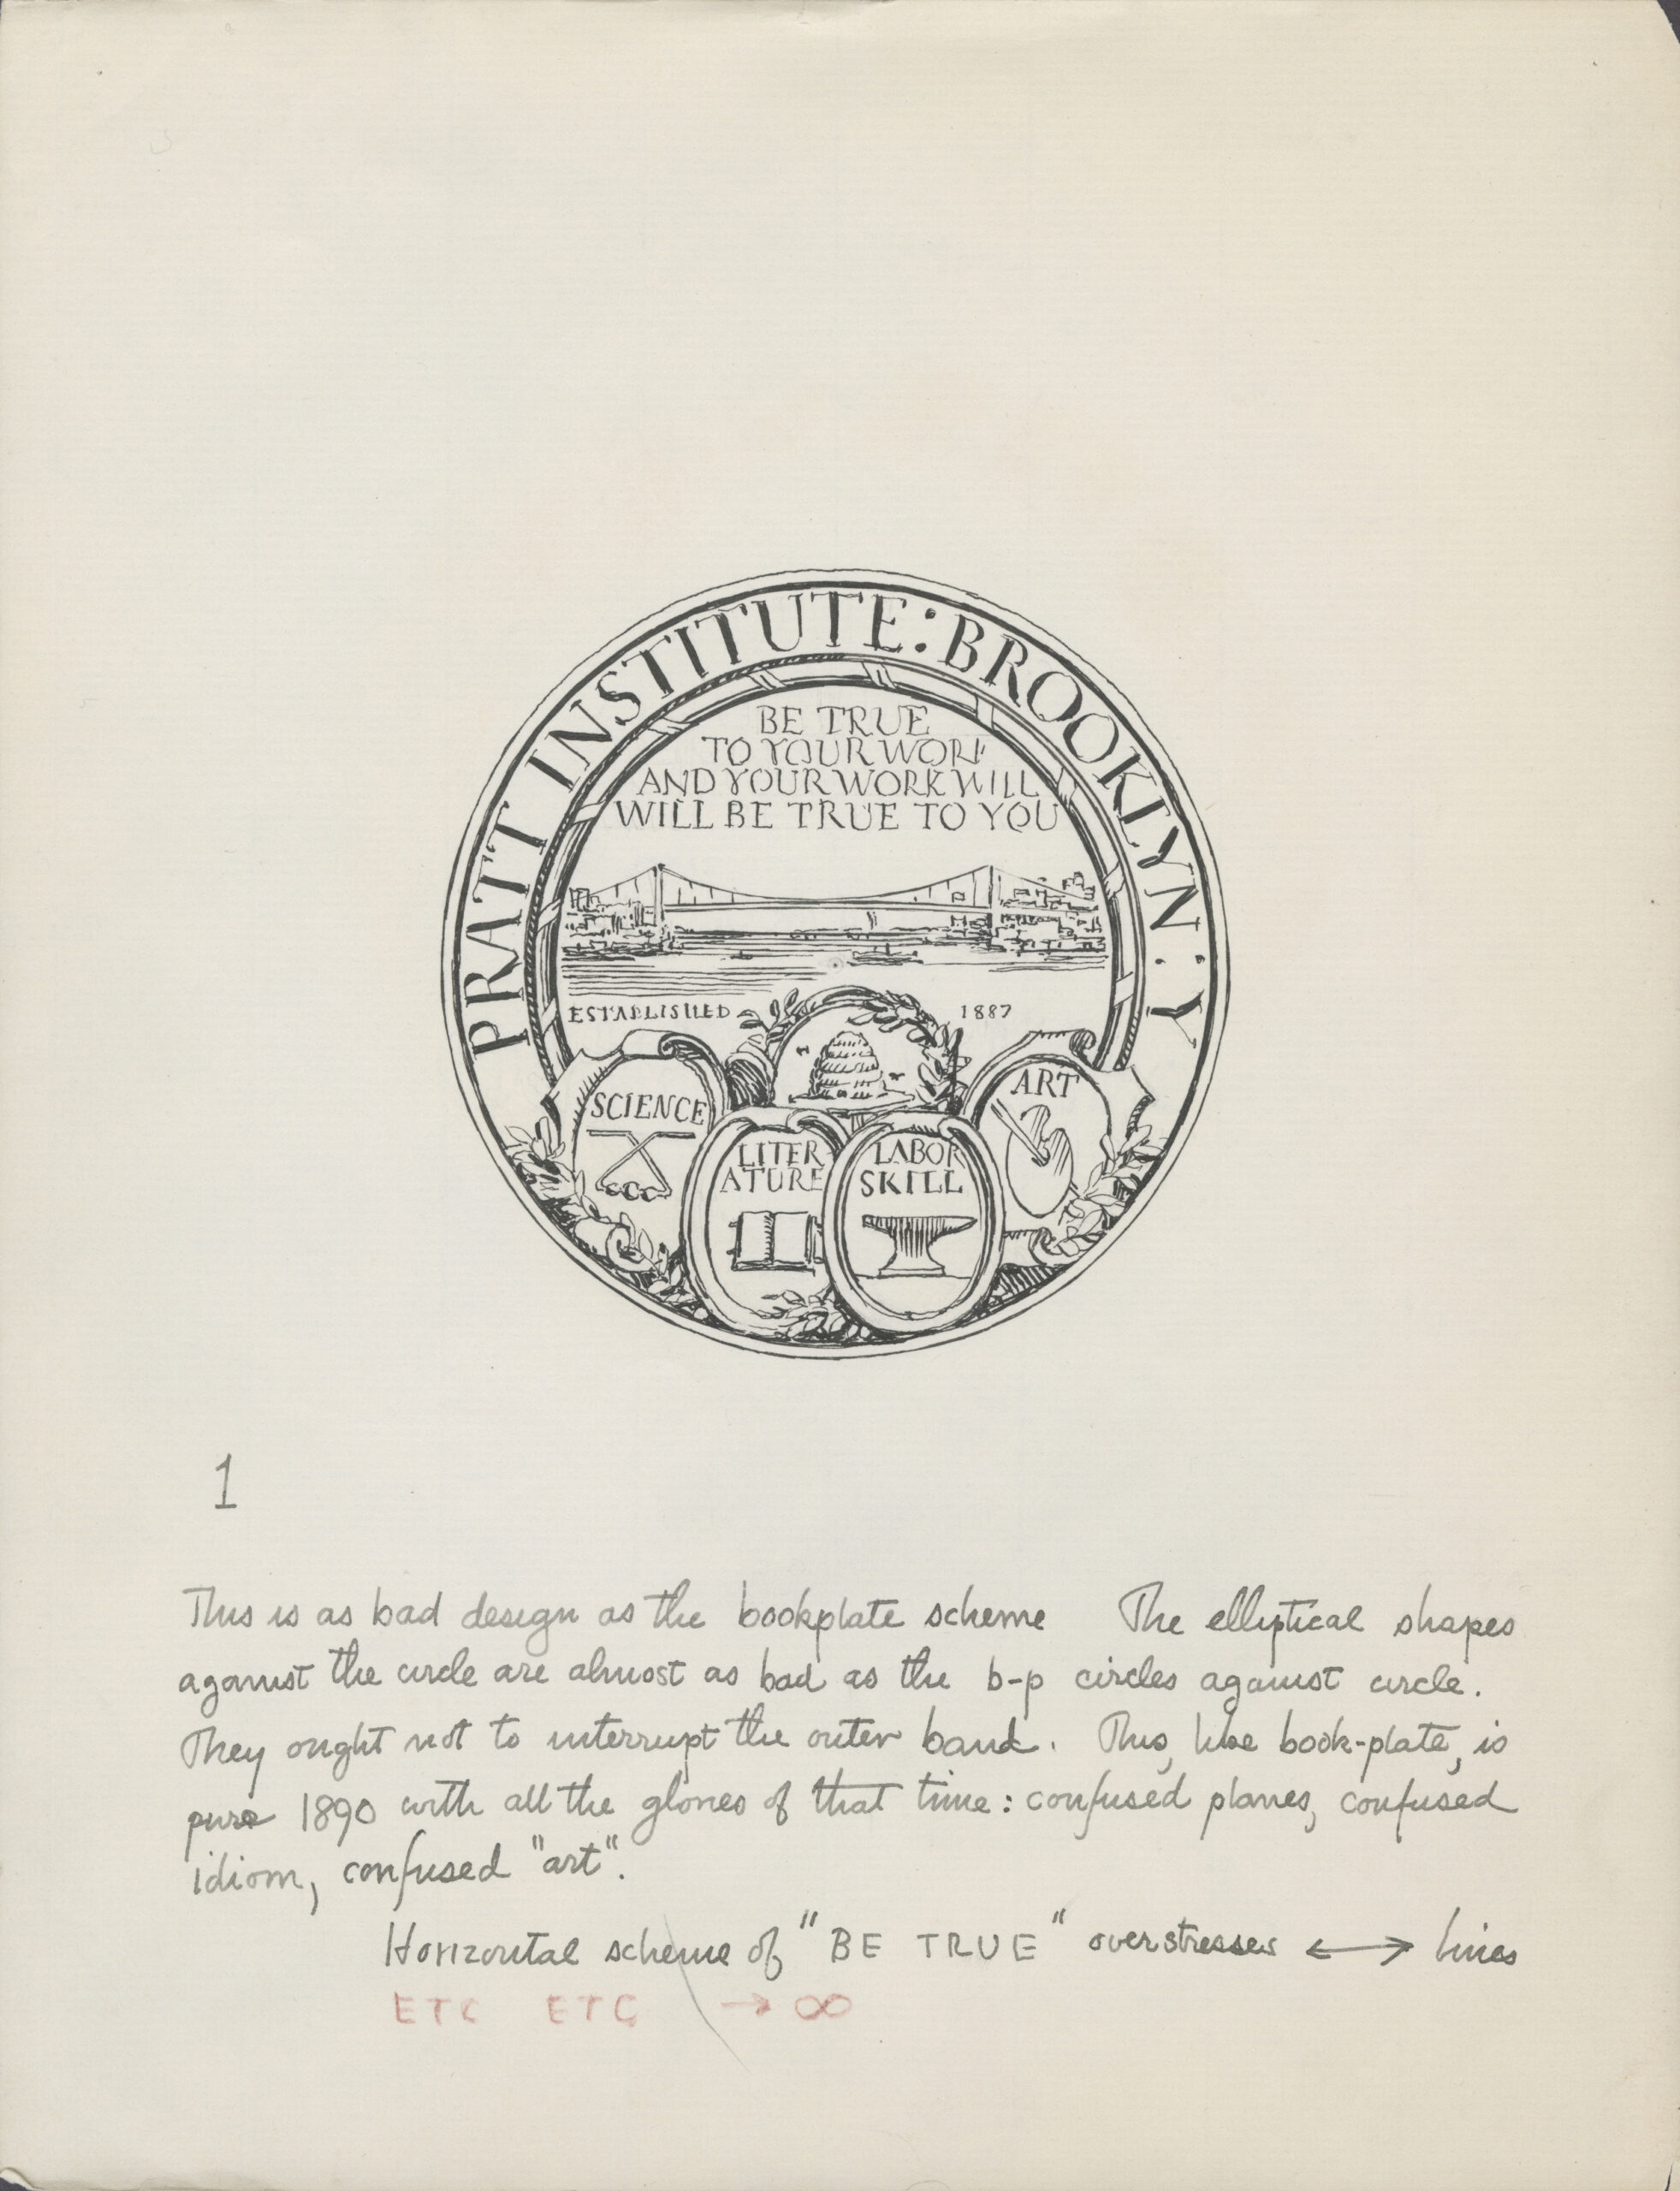 PRATT INSTITUTE : BROOKLYN : Y
BE TRUE
TO YOUR WORK
AND YOUR WORK WILL
WILL BE TRUE TO YOU
ESTABLISHED 1887
SCIENCE
LITER
ATURE
LABOR
SKILL
ART
1
This is as bad design as the bookplate scheme The elliptical shapes
against the circle are almost as bad as the b-p circles against circle.
They ought not to interrupt the outer band. This, like book-plate, is
pure 1890 with all the glories of that time: confused planes, confused
idiom, confused "art".
Horizontal scheme of "BE TRUE" overstresses ⟷ lines
ETC ETC → ∞